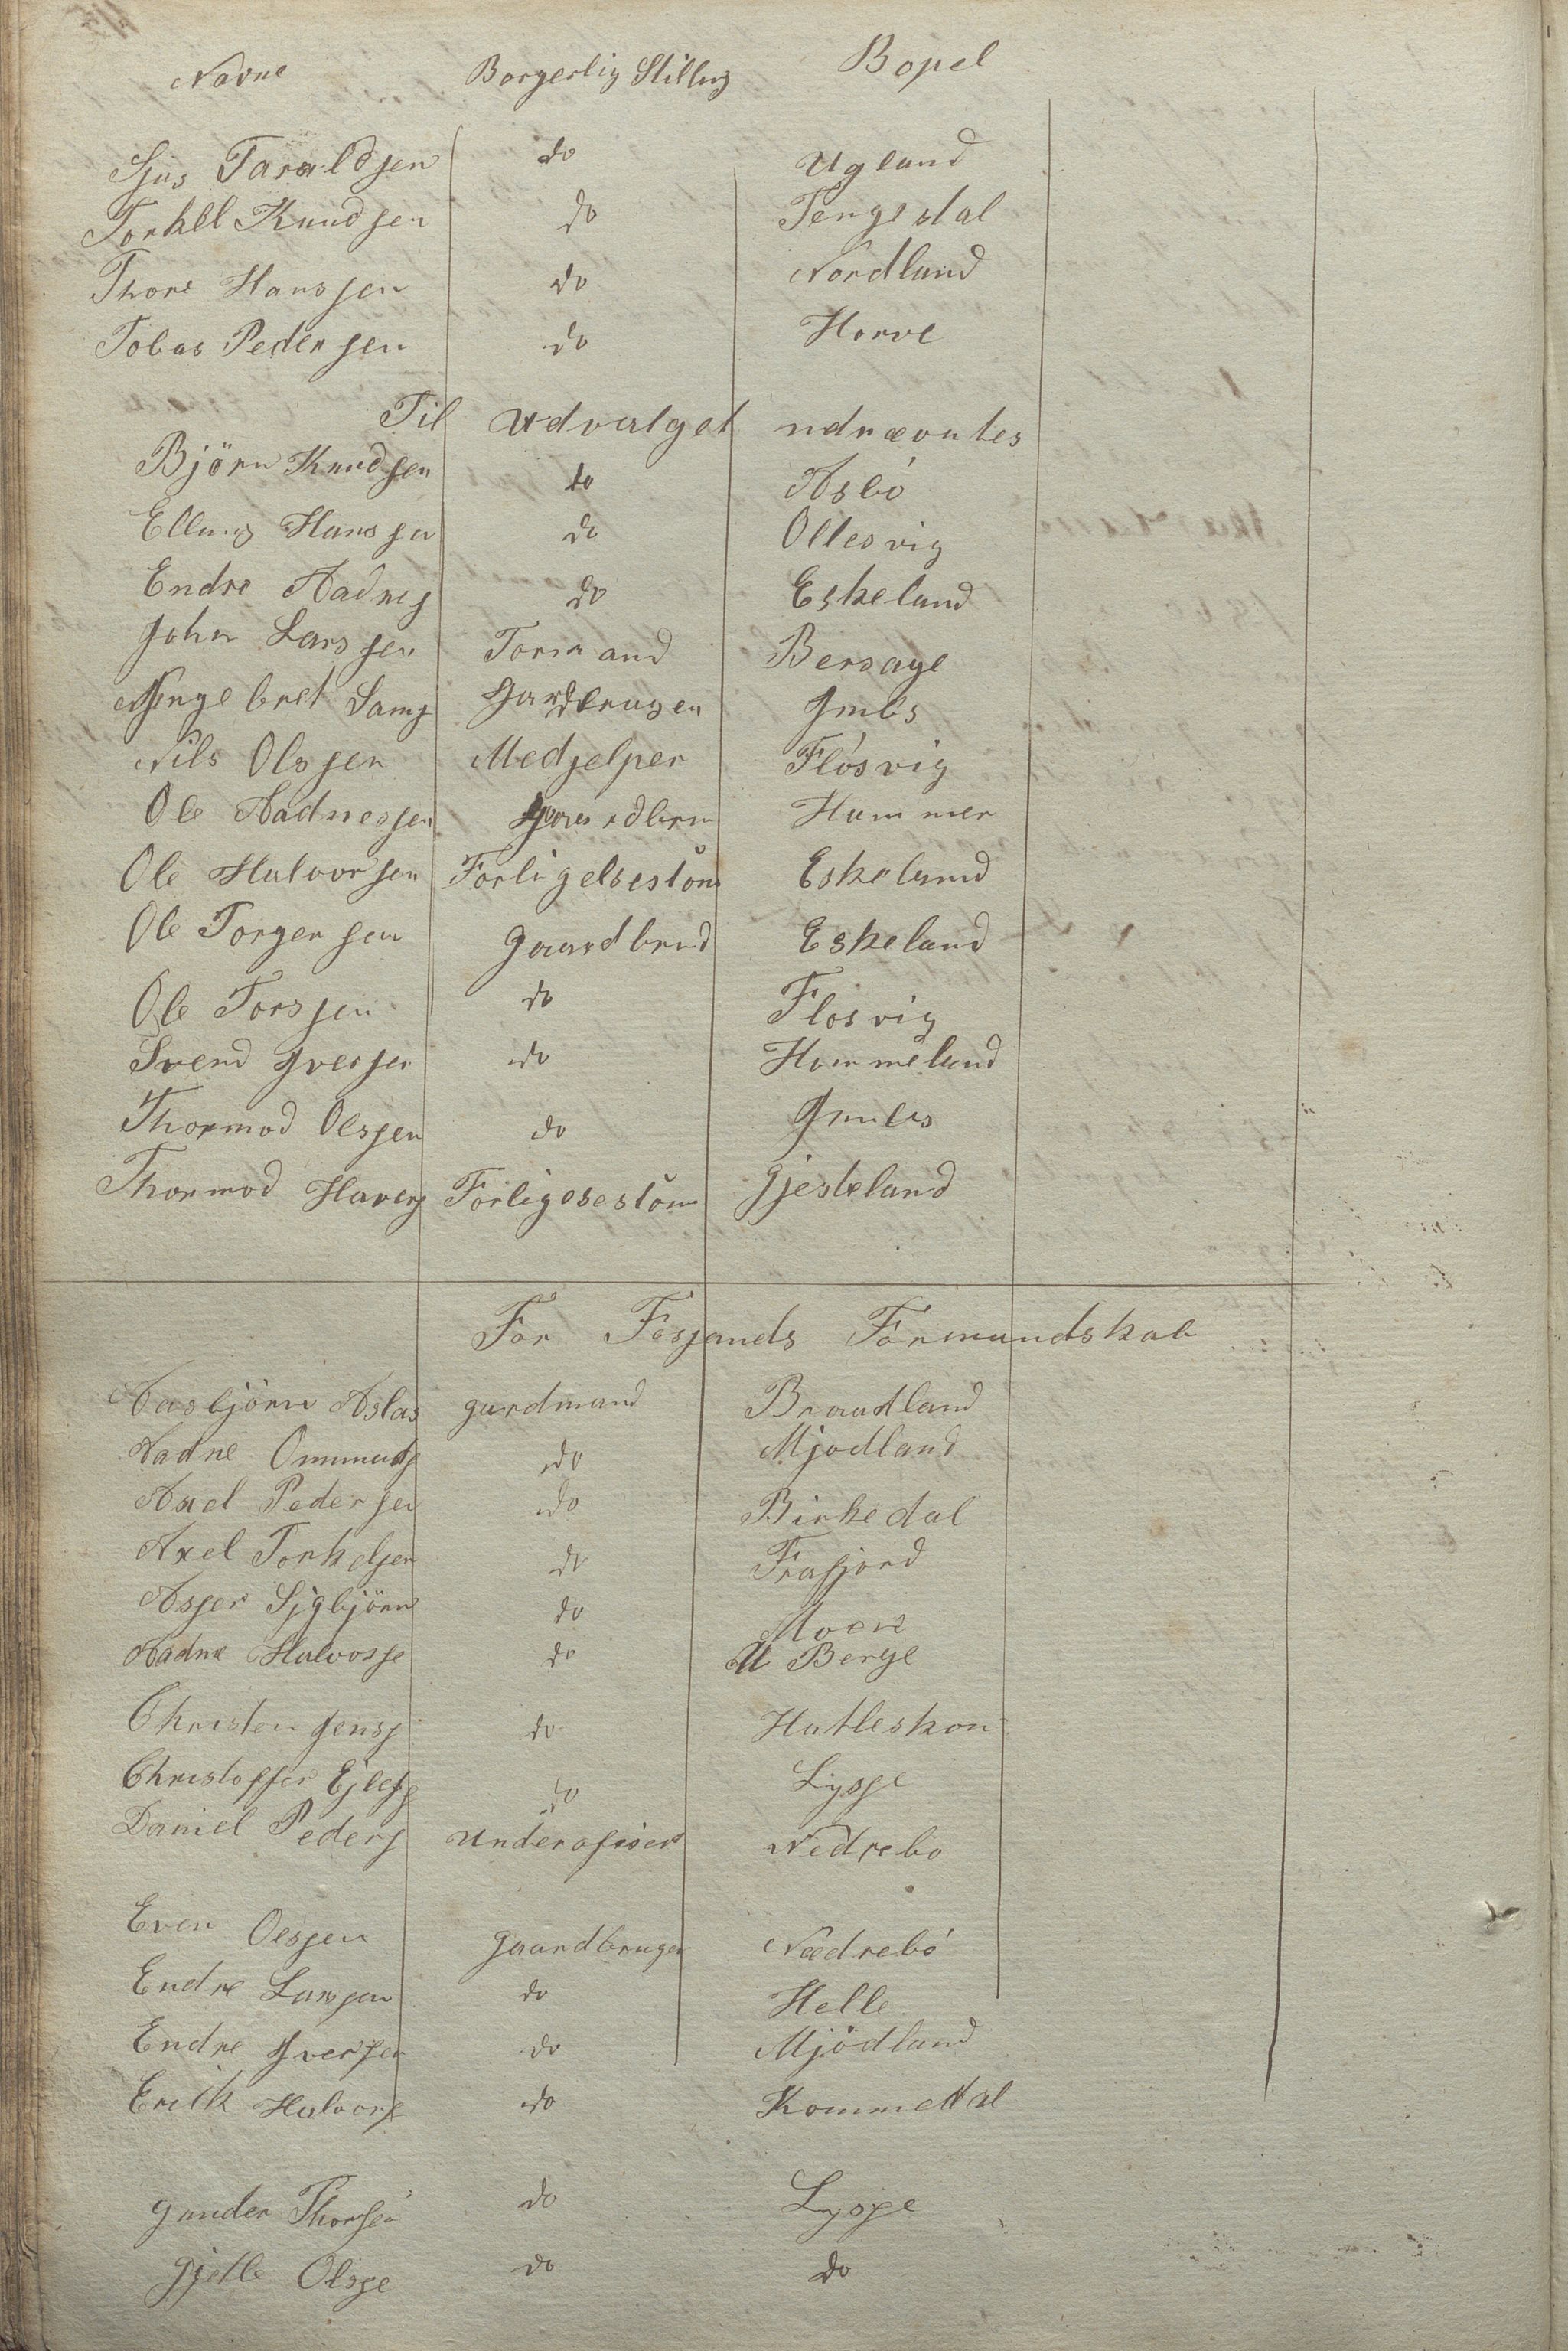 Navne Borgerlig Stilling Bopel
Sjus Taraldsen do Ugland
Torkel Knudsen do Tengesdal
Thore Hanssen do Nordland
Tobas Pedersen do Horve
Til Udvalget udnævntes
Björn Knudsen do Asbó
Elling Hanssen do Ollesvig
Endre Aadnes do Eskeland
John Larssen Formand Bersage
Ingebret Sams Gardbruger Imbs
Nils Olssen Medjelper Flösvig
Ole Aadnessen Gaardbru Hammer
Ole Halvorsen Forligelseskom Eskeland
Ole Torgersen Gaardbrud Eskeland
Ole Torssen do Flosvig
Svend Iversen do Hommeland
Thormod Olssen do Imbs
Thormod Havers Forligeseskom Gjesteland
For Fosjands Formandskab
Aasbjörn Aslas gardmand Braadland
Aadne Ommunds do Mjodland
Axel Pedersen do Birkedal
Axel Torkelsen do Frafjord
Asser Sigbjörn do Moen
Aadne Halvorse do U Berge
Christen Jenss do Hatleskon
Christoffer Ejlefs do Lysse
Daniel Peders Underofiser Nedrebo
Even Olssen Gaardbruger Nædrebó
Endre Larssen do Helle
Endre Iversen do Mjödland
Erik Halvors do Kommedal
Gunder Thorsen do Lysse
Gjetle Olsse do do